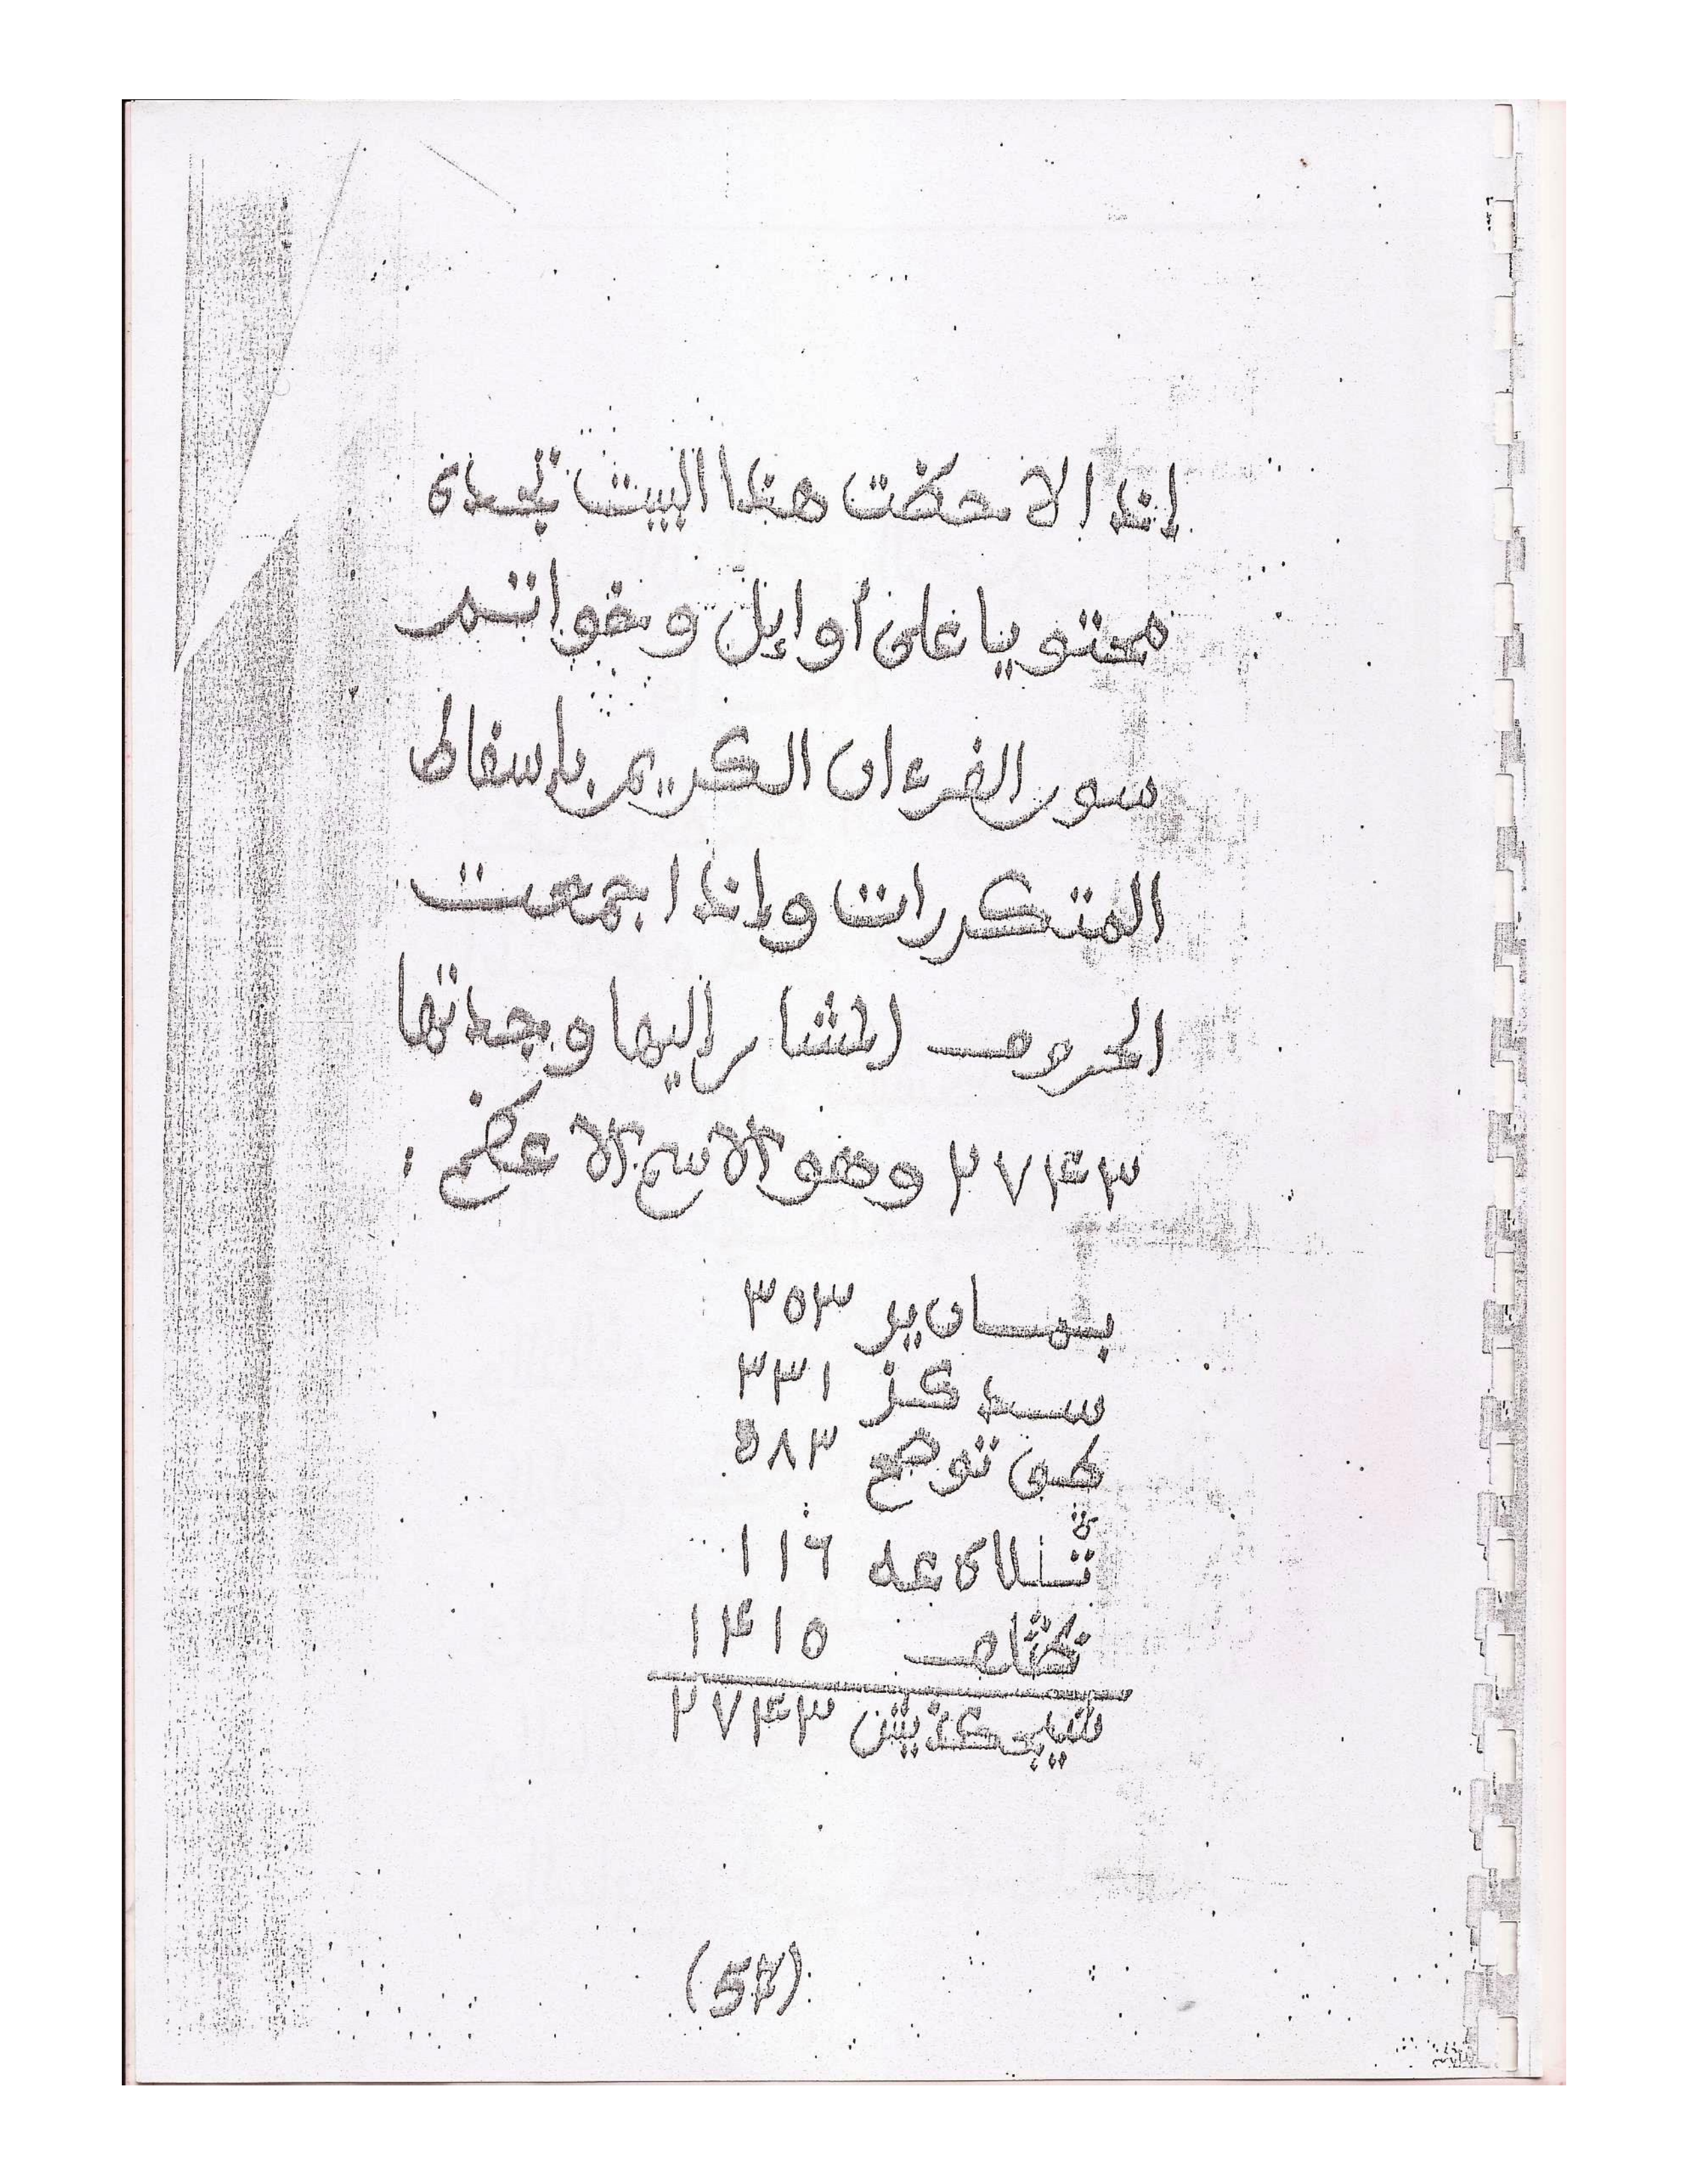 إذا لاحظت هذا البيت تجده
محتويا على أوإيل وخواتم
سور القرءان الكريم بإسقاط
المتكررات وإذا جمعت
الحروف المشار إليها وجدتها
٢٧٤٣ وهو الاسم الاعظم
بمسان ير ٣٥٣
سد كز ٣٣١
طى توضح ٥٨٣
ثلاى عه ١١٦
١٤١٥
٢٧٤٣
(54)